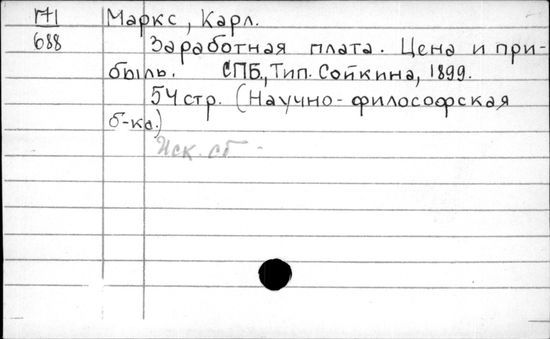 Маркс, Карл.
688 Заработная плата. Цена и при-
быль. СПБ., Тип. Сойкина, 1899.
54 стр. (Научно-философская
б-ка.)
Иск. сб